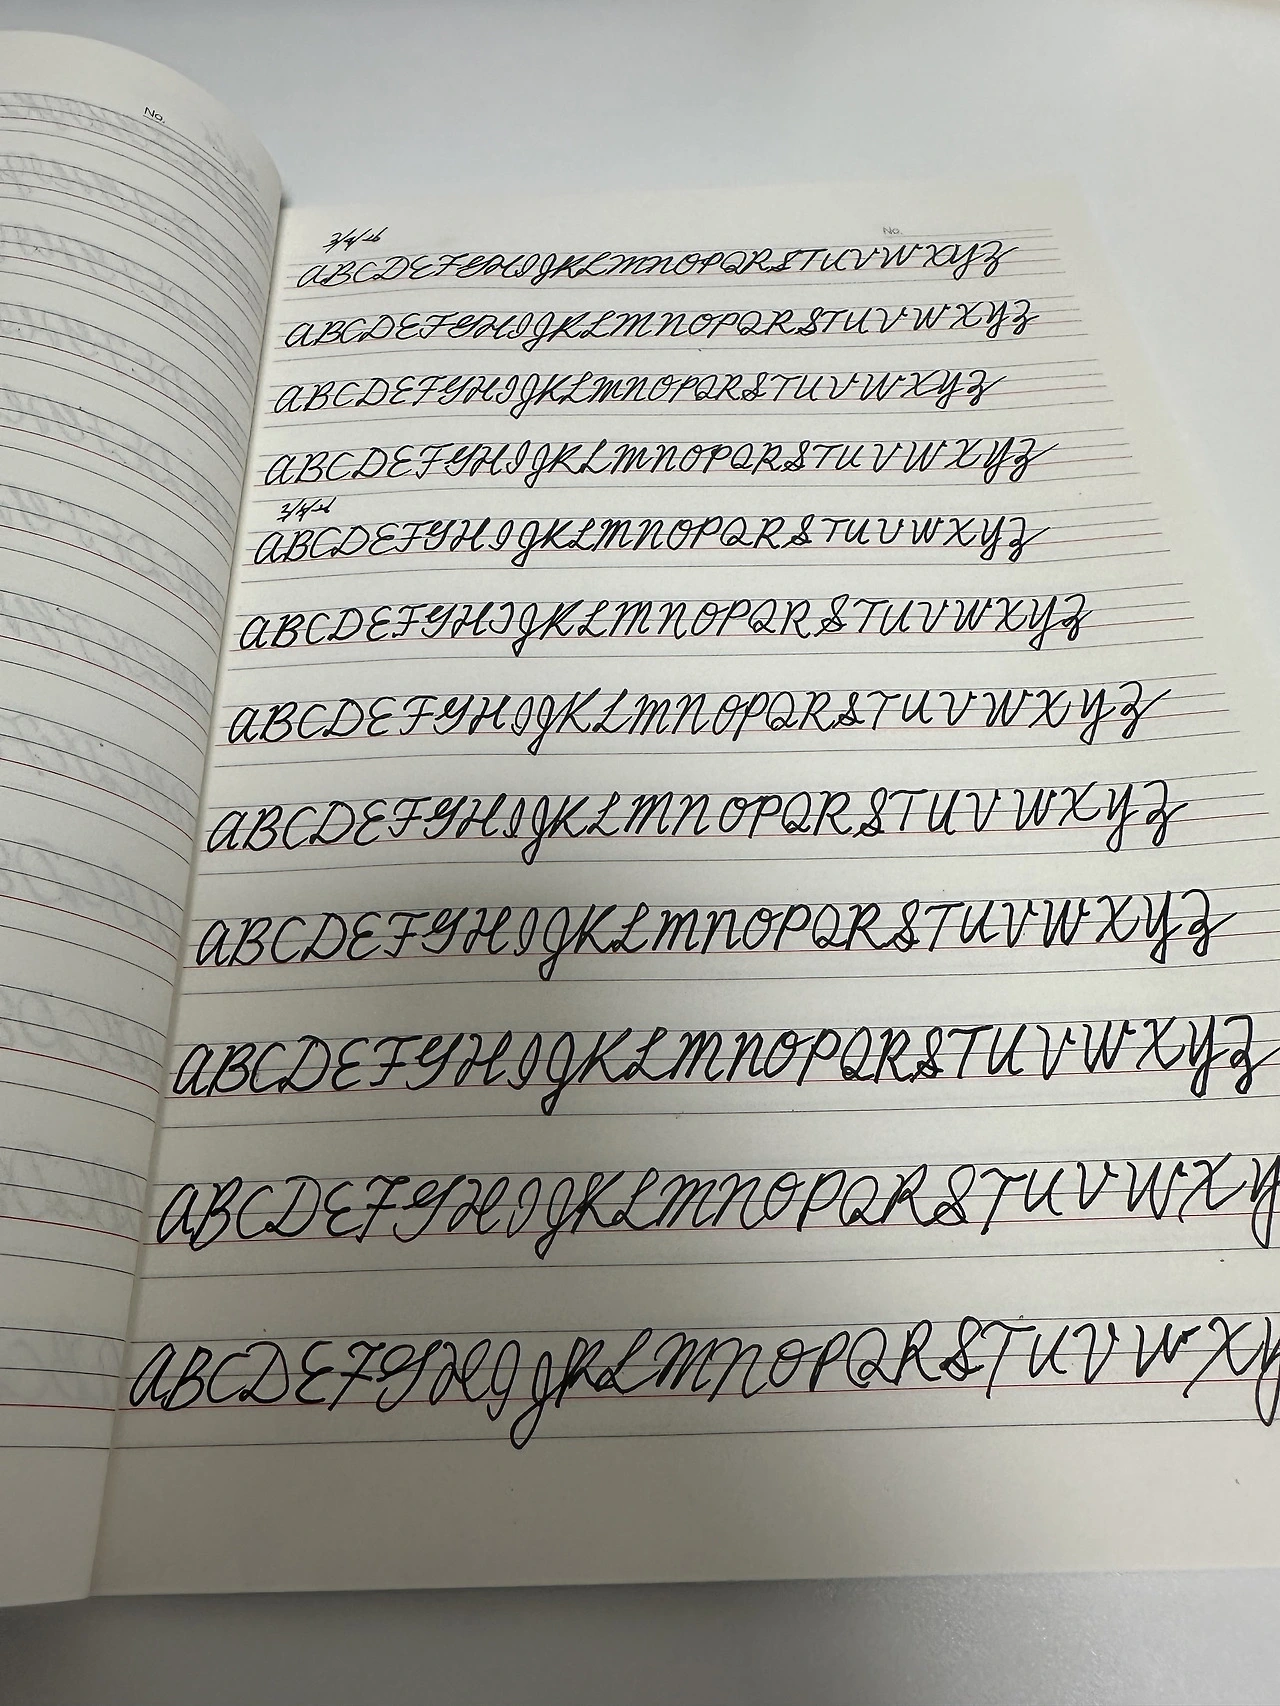 No.
No.
3/4/26
ABCDEFGHIJKLMNOPQRSTUVWXYZ
ABCDEFGHIJKLMNOPQRSTUVWXYZ
ABCDEFGHIJKLMNOPQRSTUVWXYZ
ABCDEFGHIJKLMNOPQRSTUVWXYZ
ABCDEFGHIJKLMNOPQRSTUVWXYZ
ABCDEFGHIJKLMNOPQRSTUVWXYZ
ABCDEFGHIJKLMNOPQRSTUVWXYZ
ABCDEFGHIJKLMNOPQRSTUVWXYZ
ABCDEFGHIJKLMNOPQRSTUVWXYZ
ABCDEFGHIJKLMNOPQRSTUVWXYZ
ABCDEFGHIJKLMNOPQRSTUVWXY
ABCDEFGHIJKLMNOPQRSTUVWXY